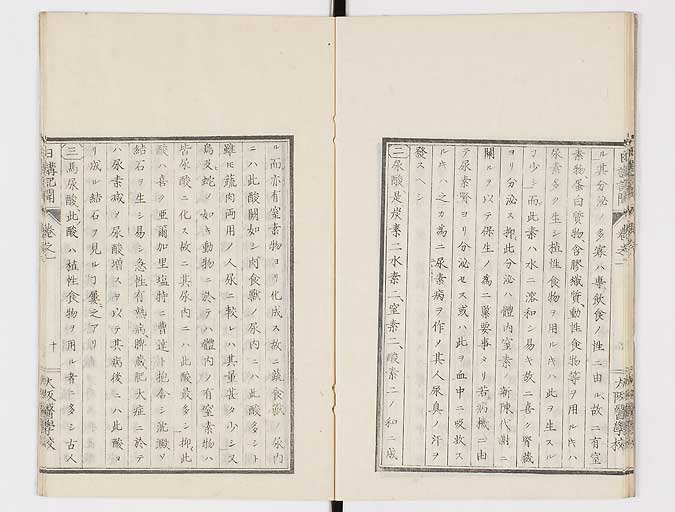 ル其分泌ノ多寡ハ專ラ飲食ノ性ニ由ル故ニ有窒
素物、蛋白質物、含膠纖質、動性食物等ヲ用ルキハ
尿素多ク生シ植性食物ヲ用ルキハ此ヲ生スル
ヿ少シ而此素ハ水ニ溶和シ易キ故ニ喜シ腎藏
ヨリ分泌ス抑此分泌ハ體内窒素ノ新陳代謝ニ
關ルヲ以テ保生ノ爲ニ最要事タリ若病機ニ由
テ尿素腎ヨリ分泌セス或ハ此ヲ血中ニ吸收ス
ルキハ之カ為ニ尿素病ヲ作メ其人尿臭ノ汗ヲ
發スヘシ
三尿酸是炭素二水素二、窒素二、酸素二ノ和ニ成
ル而亦有窒素物ヨリ化成ス故ニ蔬食獸ノ尿内
ニハ此酸闕如シ肉食獸ノ尿内ニハ此酸多シト
雖𪜈蔬肉両用ノ人尿ニ較レハ其量甚タ少シ又
鳥及蛇ノ如キ動物ニ於テハ體内ノ有窒素物ハ
皆尿酸ニ化ス故ニ其尿内ニハ此酸最多シ抑此
酸ハ喜ク亜爾加里塩特ニ曹達ト抱合シ沈澱シ
結石ヲ生シ易シ急性有熱病、脾藏肥大症ニ於テ
ハ尿素減ヲ尿酸増スヲ以テ其病後ニハ此酸ヨ
リ成ル結石ヲ見ルヿ屢之アリ
三馬尿酸此酸ハ植性食物ヲ用ル者ニ多シ古人
日講記聞
巻之一
十
大阪醫學校
大阪醫學校